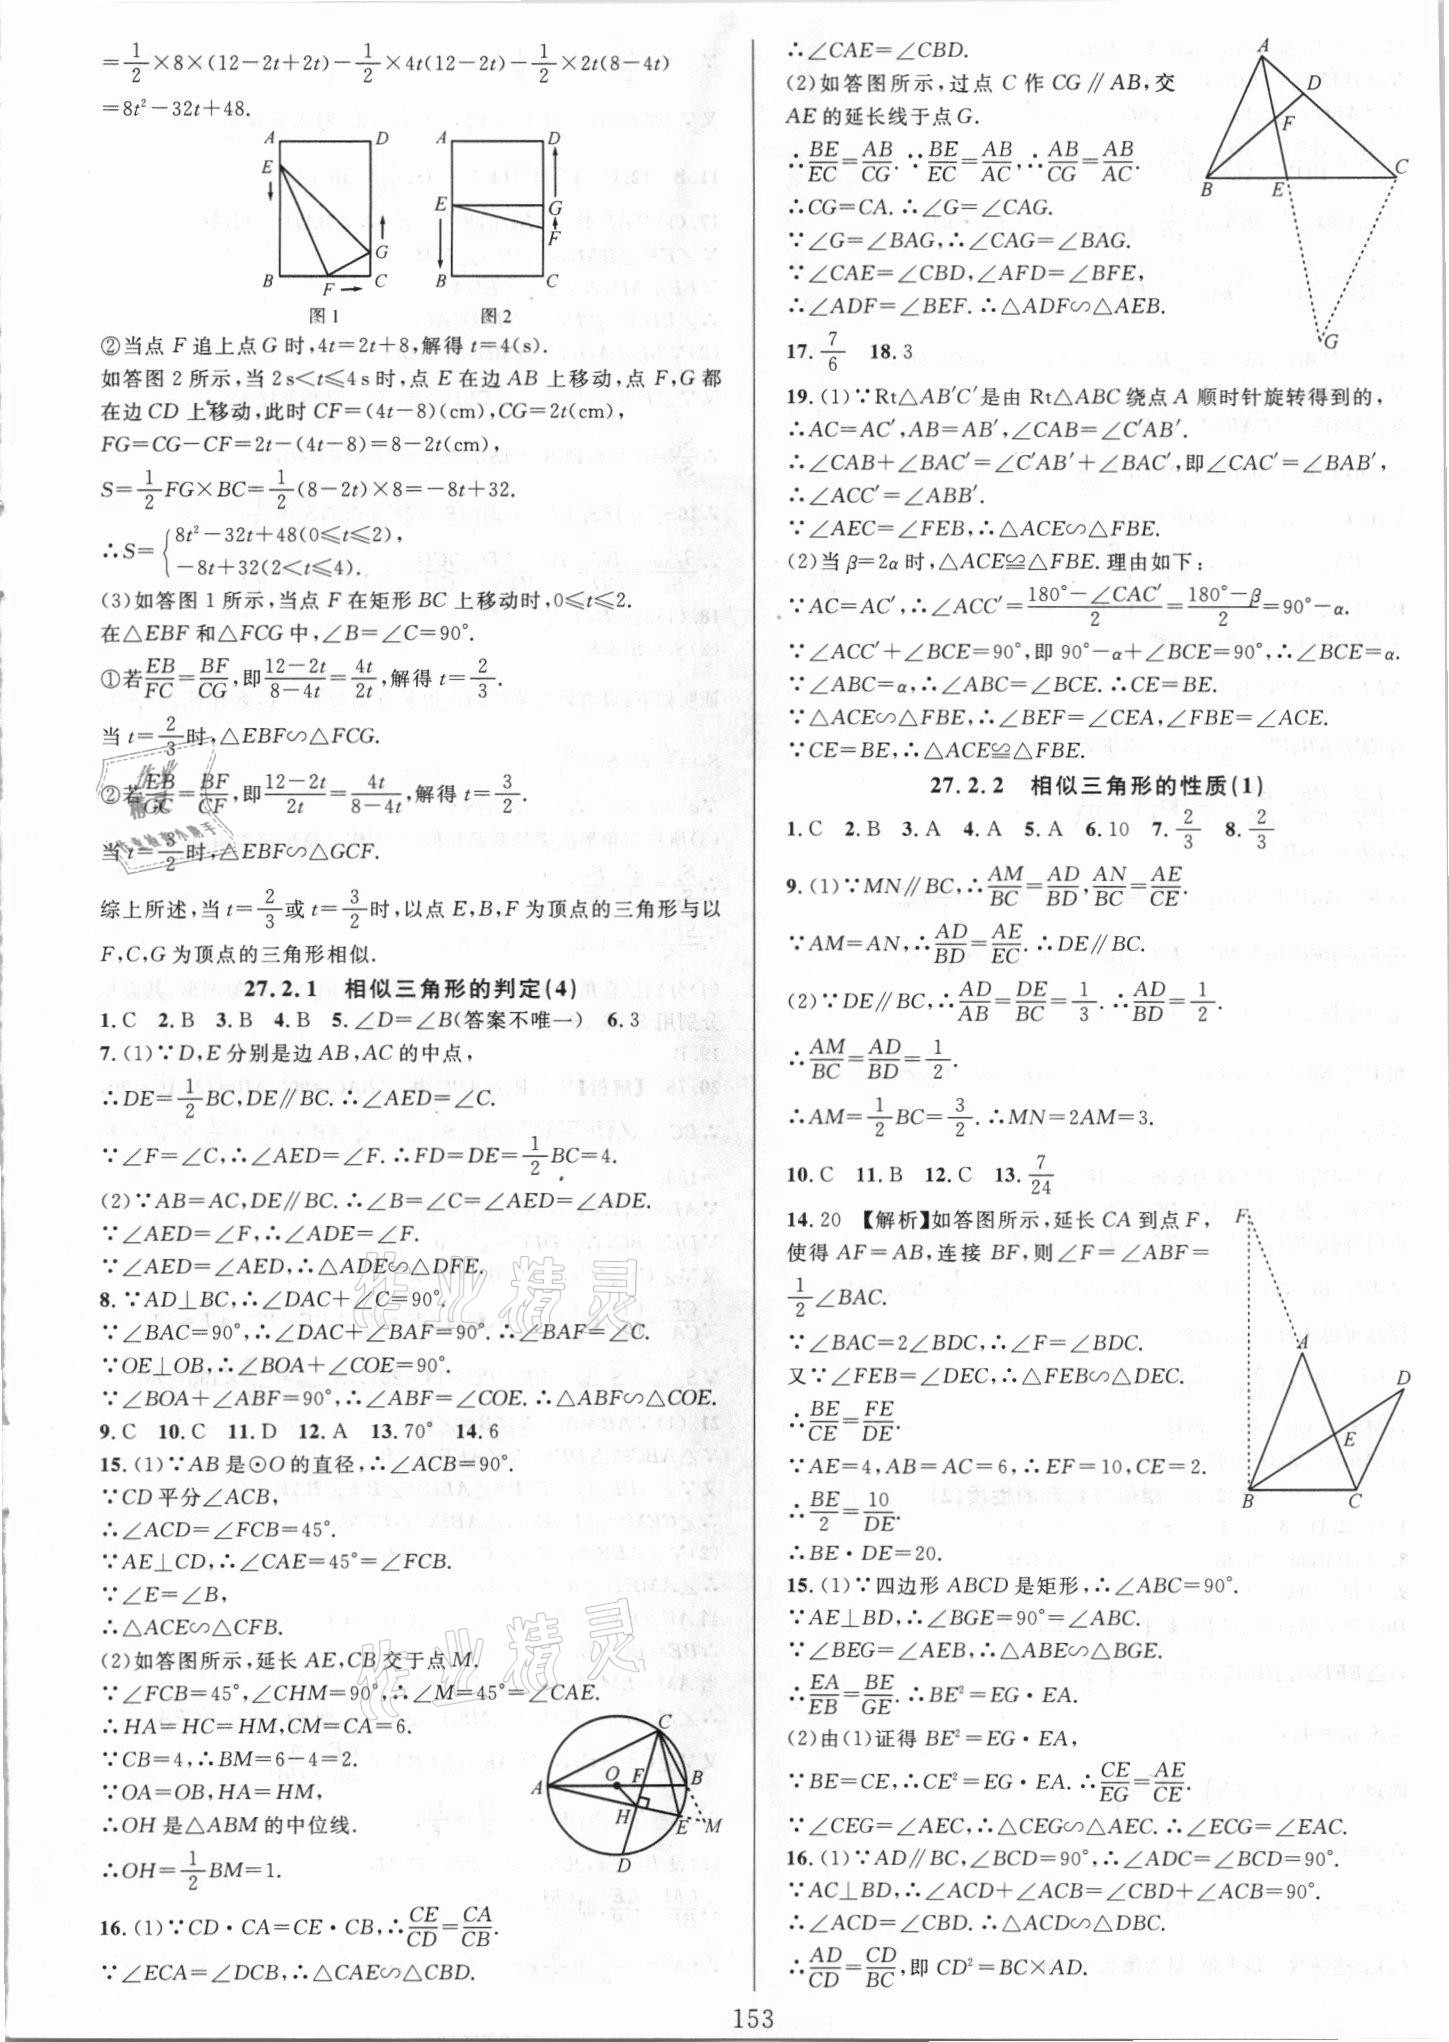 =1/2×8×(12-2t+2t)-1/2×4t(12-2t)-1/2×2t(8-4t)
=8t²-32t+48.
A D E G B F C
图1
A D E G F B C
图2
②当点 F 追上点G 时,4t=2t+8,解得 t=4(s).
如答图 2 所示,当 2 s<t⩽4 s时,点 E 在边 AB 上移动,点 F,G 都
在边 CD 上移动,此时 CF=(4t-8)(cm),CG=2t(cm),
FG=CG-CF=2t-(4t-8)=8-2t(cm),
S=1/2FG×BC=1/2(8-2t)×8=-8t+32.
∴S={8t²-32t+48(0⩽t⩽2),
-8t+32(2<t⩽4).
(3)如答图 1 所示,当点 F 在矩形 BC 上移动时,0⩽t⩽2.
在△EBF 和△FCG 中,∠B=∠C=90°.
①若EB/FC=BF/CG,即(12-2t)/(8-4t)=4t/2t,解得 t=2/3.
当 t=2/3时,△EBF∽△FCG.
②若EB/GC=BF/CF,即(12-2t)/2t=4t/(8-4t),解得 t=3/2.
当 t=3/2时,△EBF∽△GCF.
综上所述,当 t=2/3或 t=3/2时,以点 E,B,F 为顶点的三角形与以
F,C,G 为顶点的三角形相似.
27.2.1 相似三角形的判定(4)
1.C 2.B 3.B 4.B 5.∠D=∠B(答案不唯一) 6.3
7.(1)∵D,E 分别是边 AB,AC 的中点,
∴DE=1/2BC,DE∥BC.∴∠AED=∠C.
∵∠F=∠C,∴∠AED=∠F.∴FD=DE=1/2BC=4.
(2)∵AB=AC,DE∥BC.∴∠B=∠C=∠AED=∠ADE.
∵∠AED=∠F,∴∠ADE=∠F.
∵∠AED=∠AED,∴△ADE∽△DFE.
8.∵AD⊥BC,∴∠DAC+∠C=90°.
∵∠BAC=90°,∴∠DAC+∠BAF=90°.∴∠BAF=∠C.
∵OE⊥OB,∴∠BOA+∠COE=90°.
∵∠BOA+∠ABF=90°,∴∠ABF=∠COE.∴△ABF∽△COE.
9.C 10.C 11.D 12.A 13.70° 14.6
15.(1)∵AB是⊙O的直径,∴∠ACB=90°.
∵CD平分∠ACB,
∴∠ACD=∠FCB=45°.
∵AE⊥CD,∴∠CAE=45°=∠FCB.
∵∠E=∠B,
∴△ACE∽△CFB.
(2)如答图所示,延长 AE,CB交于点 M.
∵∠FCB=45°,∠CHM=90°,∴∠M=45°=∠CAE.
∴HA=HC=HM,CM=CA=6.
∵CB=4,∴BM=6-4=2.
∵OA=OB,HA=HM,
∴OH是△ABM 的中位线.
∴OH=1/2BM=1.
C A O F B H E M D
16.(1)∵CD·CA=CE·CB,∴CE/CD=CA/CB.
∵∠ECA=∠DCB,∴△CAE∽△CBD.
∴∠CAE=∠CBD.
(2)如答图所示,过点 C 作 CG∥AB,交
AE的延长线于点G.
∴BE/EC=AB/CG.∵BE/EC=AB/AC,∴AB/CG=AB/AC.
∴CG=CA.∴∠G=∠CAG.
∵∠G=∠BAG,∴∠CAG=∠BAG.
∵∠CAE=∠CBD,∠AFD=∠BFE,
∴∠ADF=∠BEF.∴△ADF∽△AEB.
A D F B E C G
17.7/6 18.3
19.(1)∵Rt△AB′C′是由 Rt△ABC 绕点 A 顺时针旋转得到的,
∴AC=AC′,AB=AB′,∠CAB=∠C′AB′.
∴∠CAB+∠BAC′=∠C′AB′+∠BAC′,即∠CAC′=∠BAB′,
∴∠ACC′=∠ABB′.
∵∠AEC=∠FEB,∴△ACE∽△FBE.
(2)当 β=2α时,△ACE≌△FBE.理由如下:
∵AC=AC′,∴∠ACC′=(180°-∠CAC′)/2=(180°-β)/2=90°-α.
∵∠ACC′+∠BCE=90°,即 90°-α+∠BCE=90°,∴∠BCE=α.
∵∠ABC=α,∴∠ABC=∠BCE.∴CE=BE.
∵△ACE∽△FBE,∴∠BEF=∠CEA,∠FBE=∠ACE.
∵CE=BE,∴△ACE≌△FBE.
27.2.2 相似三角形的性质(1)
1.C 2.B 3.A 4.A 5.A 6.10 7.2/3 8.2/3
9.(1)∵MN∥BC,∴AM/BC=AD/BD,AN/BC=AE/CE.
∵AM=AN,∴AD/BD=AE/EC.∴DE∥BC.
(2)∵DE∥BC,∴AD/AB=DE/BC=1/3.∴AD/BD=1/2.
∴AM/BC=AD/BD=1/2.
∴AM=1/2BC=3/2.∴MN=2AM=3.
10.C 11.B 12.C 13.7/24
14.20 【解析】如答图所示,延长 CA 到点 F,
使得 AF=AB,连接 BF,则∠F=∠ABF=
1/2∠BAC.
∵∠BAC=2∠BDC,∴∠F=∠BDC.
又∵∠FEB=∠DEC,∴△FEB∽△DEC.
∴BE/CE=FE/DE.
∵AE=4,AB=AC=6,∴EF=10,CE=2.
∴BE/2=10/DE.
∴BE·DE=20.
F A D E B C
15.(1)∵四边形 ABCD 是矩形,∴∠ABC=90°.
∵AE⊥BD,∴∠BGE=90°=∠ABC.
∵∠BEG=∠AEB,∴△ABE∽△BGE.
∴EA/EB=BE/GE.∴BE²=EG·EA.
(2)由(1)证得 BE²=EG·EA,
∵BE=CE,∴CE²=EG·EA.∴CE/EG=AE/CE.
∵∠CEG=∠AEC,∴△CEG∽△AEC.∴∠ECG=∠EAC.
16.(1)∵AD∥BC,∠BCD=90°,∴∠ADC=∠BCD=90°.
∵AC⊥BD,∴∠ACD+∠ACB=∠CBD+∠ACB=90°.
∴∠ACD=∠CBD.∴△ACD∽△DBC.
∴AD/CD=CD/BC,即 CD²=BC×AD.
153
作业精灵
作业精灵
作业精灵